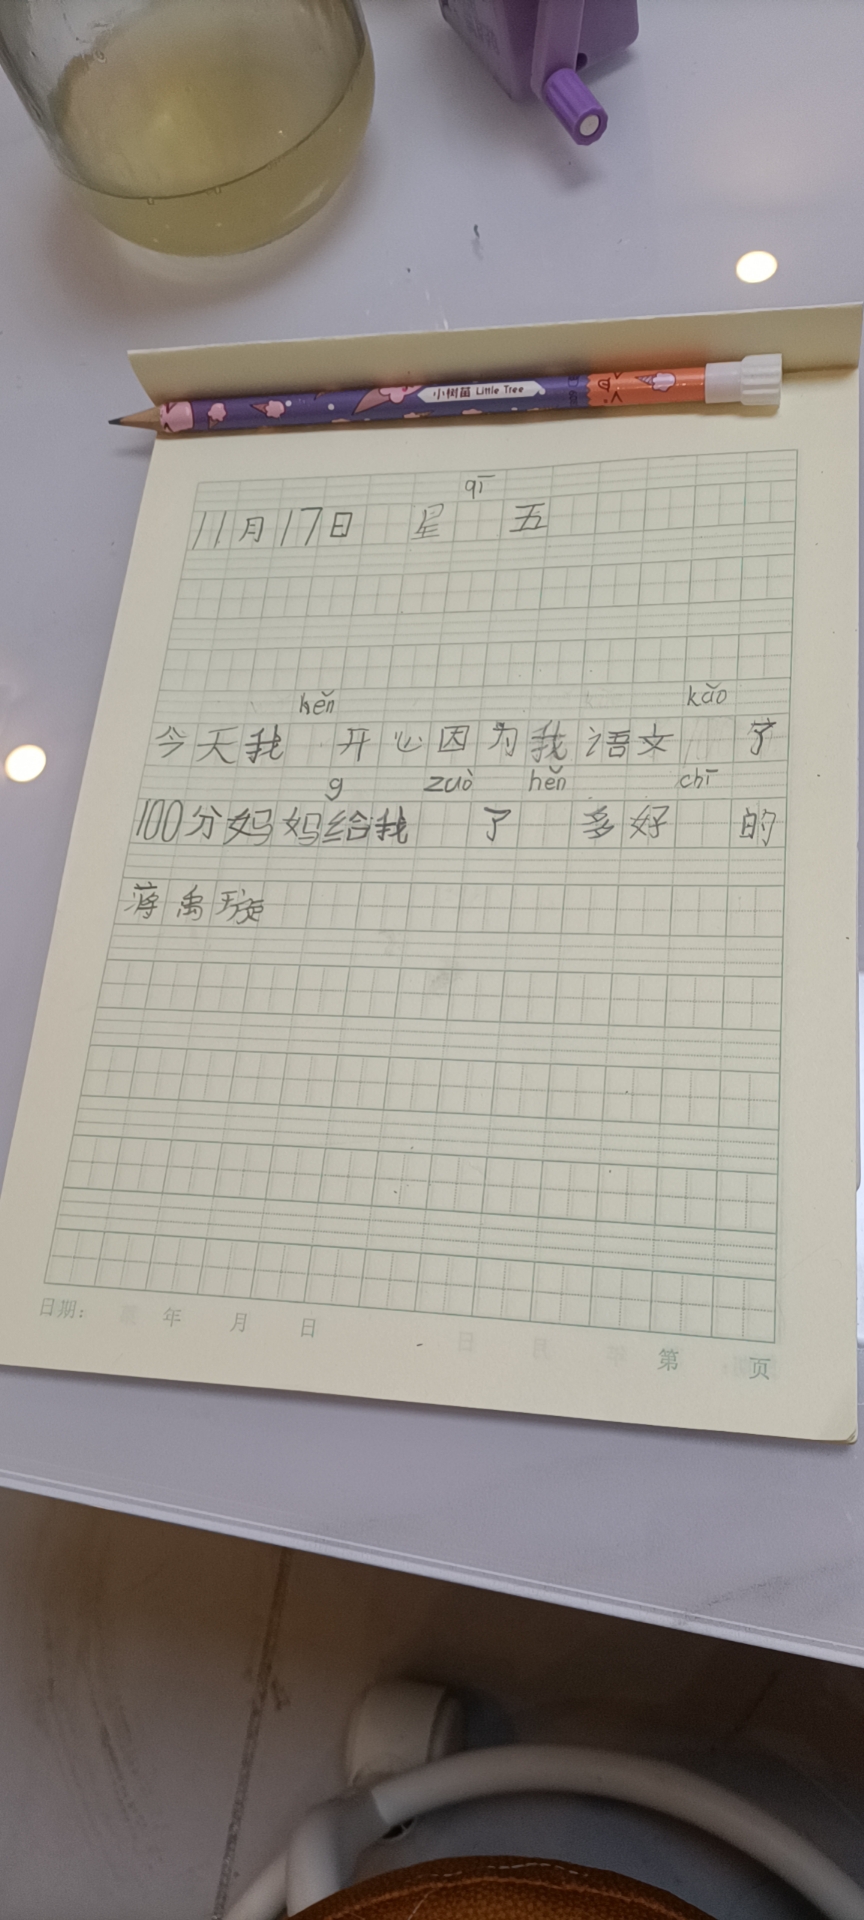 小树苗 Little Tree
qī
11月17日 星 五
hěn kǎo
今天我 开心因为我语文 了
g zuò hěn chī
100分妈妈给我 了 多好 的
蒋禹璇
日期： 年 月 日 第 页